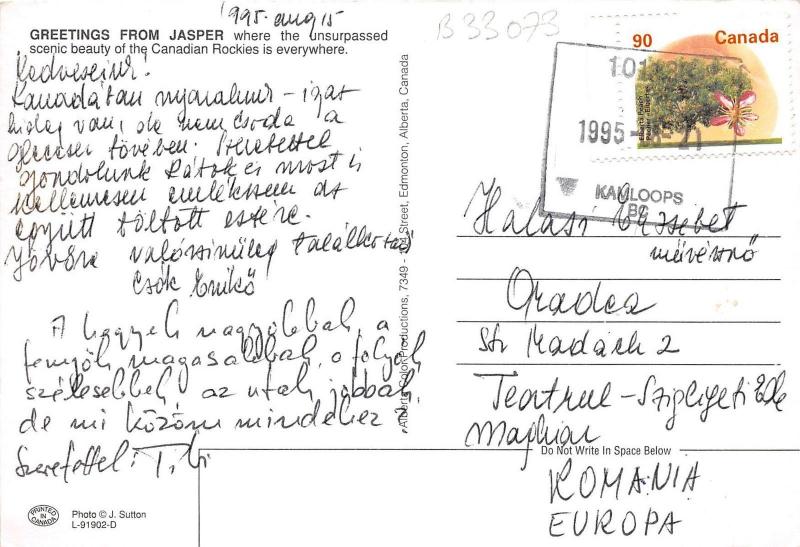 1995. aug 15
B 33073
GREETINGS FROM JASPER where the unsurpassed
scenic beauty of the Canadian Rockies is everywhere.
Kedveseim!
Kanadában nyaralunk – igaz
hideg van, de nem csoda a
gleccser tövében. Szeretettel
gondolunk Rátok és most is
kellemesen emlékszem az
együtt töltött estére.
Jövőre valószinűleg találkozás
Csók Enikő
A hegyek nagyobbak, a
fenyők magasabbak, a folyók
szélesebbek, az utak jobbak,
de mi közöm mindehez?
Szeretettel: Tibi
PRINTED IN CANADA
Photo © J. Sutton
L-91902-D
Alberta Color Productions, 7349 - 104 Street, Edmonton, Alberta, Canada
90 Canada
Elberta Peach
1995
KAMLOOPS
BC
Halasi Erzsébet
művésznő
Oradea
str Madách 2
Teatrul – Szigligeti Ede
Maghiar
Do Not Write In Space Below
ROMANIA
EUROPA